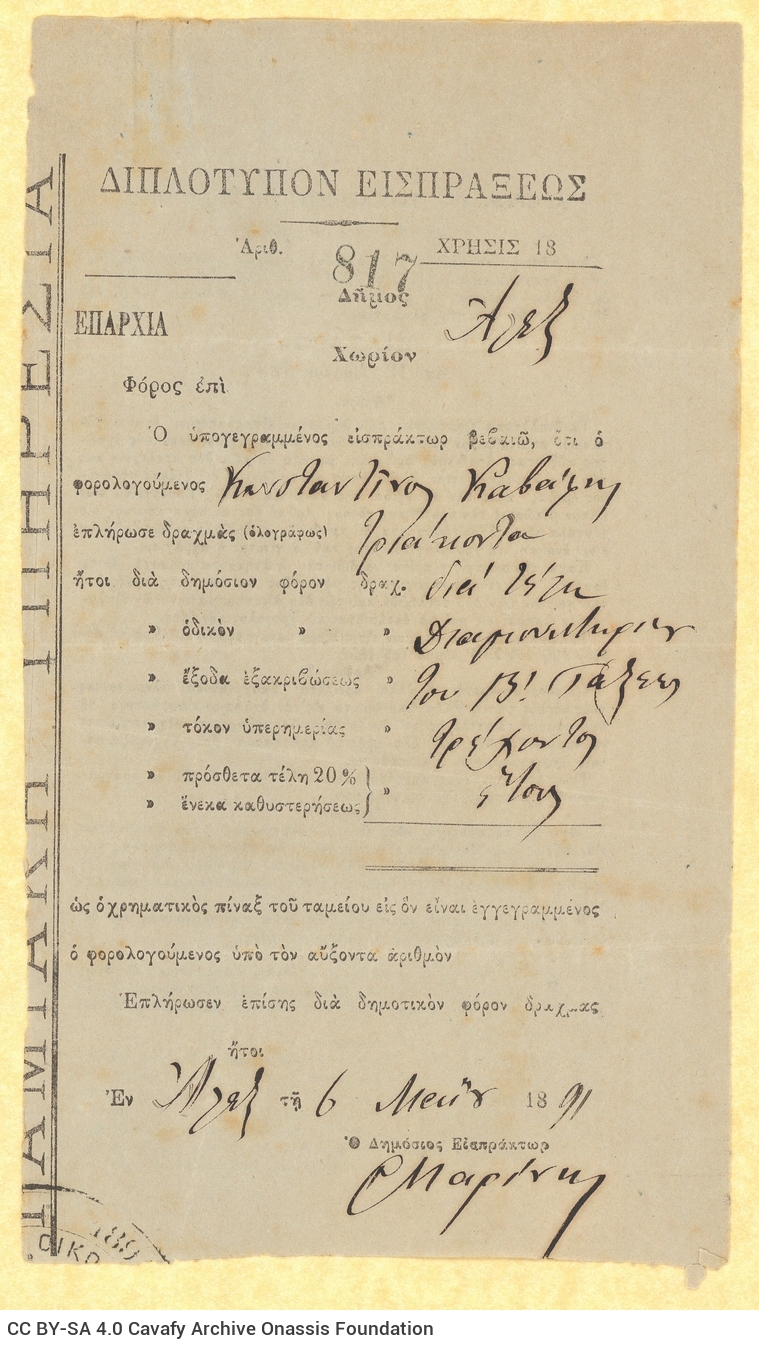 ΤΑΜΙΑΚΗ ΥΠΗΡΕΣΙΑ
ΔΙΠΛΟΤΥΠΟΝ ΕΙΣΠΡΑΞΕΩΣ
Ἀριθ. 817 ΧΡΗΣΙΣ 18
Δῆμος
ΕΠΑΡΧΙΑ Ἀλεξ
Χωρίον
Φόρος ἐπὶ
Ὁ ὑπογεγραμμένος εἰσπράκτωρ βεβαιῶ, ὅτι ὁ
φορολογούμενος Κωνσταντῖνος Καβάφης
ἐπλήρωσε δραχμὰς (ὁλογράφως) τριάκοντα
ἤτοι διὰ δημόσιον φόρον δραχ. διά τέλη
» ὁδικὸν » » Διαμονητηρίου
» ἔξοδα ἐξακριβώσεως » του Β! Τάξεως
» τόκον ὑπερημερίας » τρέχοντος
» πρόσθετα τέλη 20 % » ἔτους
» ἕνεκα καθυστερήσεως
ὡς ὁ χρηματικὸς πίναξ τοῦ ταμείου εἰς ὃν εἶναι ἐγγεγραμμένος
ὁ φορολογούμενος ὑπὸ τὸν αὔξοντα ἀριθμὸν
Ἐπλήρωσεν ἐπίσης διὰ δημοτικὸν φόρον δραχμας
ἤτοι
Ἐν Ἀλεξ τῇ 6 Μαΐου 1891
Ὁ Δημόσιος Εἰσπράκτωρ
189
ΟΙΚΟ
CC BY-SA 4.0 Cavafy Archive Onassis Foundation